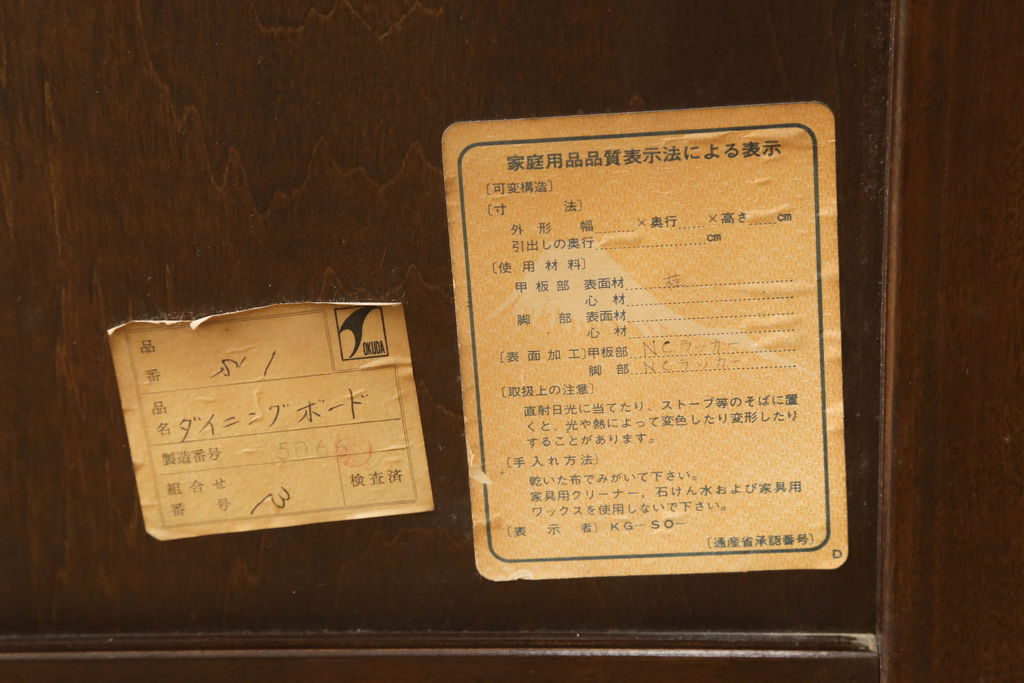 品番
OKUDA
品名 ダイニングボード
製造番号 50660
組合せ番号 3
検査済
家庭用品品質表示法による表示
〔可変構造〕
〔寸 法〕
外形 幅 ×奥行 ×高さ cm
引出しの奥行 cm
〔使用材料〕
甲板部 表面材
心材
脚部 表面材
心材
〔表面加工〕甲板部 NCラッカー
脚部 NCラッカー
〔取扱上の注意〕
直射日光に当てたり、ストーブ等のそばに置
くと、光や熱によって変色したり変形したり
することがあります。
〔手入れ方法〕
乾いた布でみがいて下さい。
家具用クリーナー、石けん水および家具用
ワックスを使用しないで下さい。
〔表示者〕KG-SO-
〔通産省承認番号〕
D